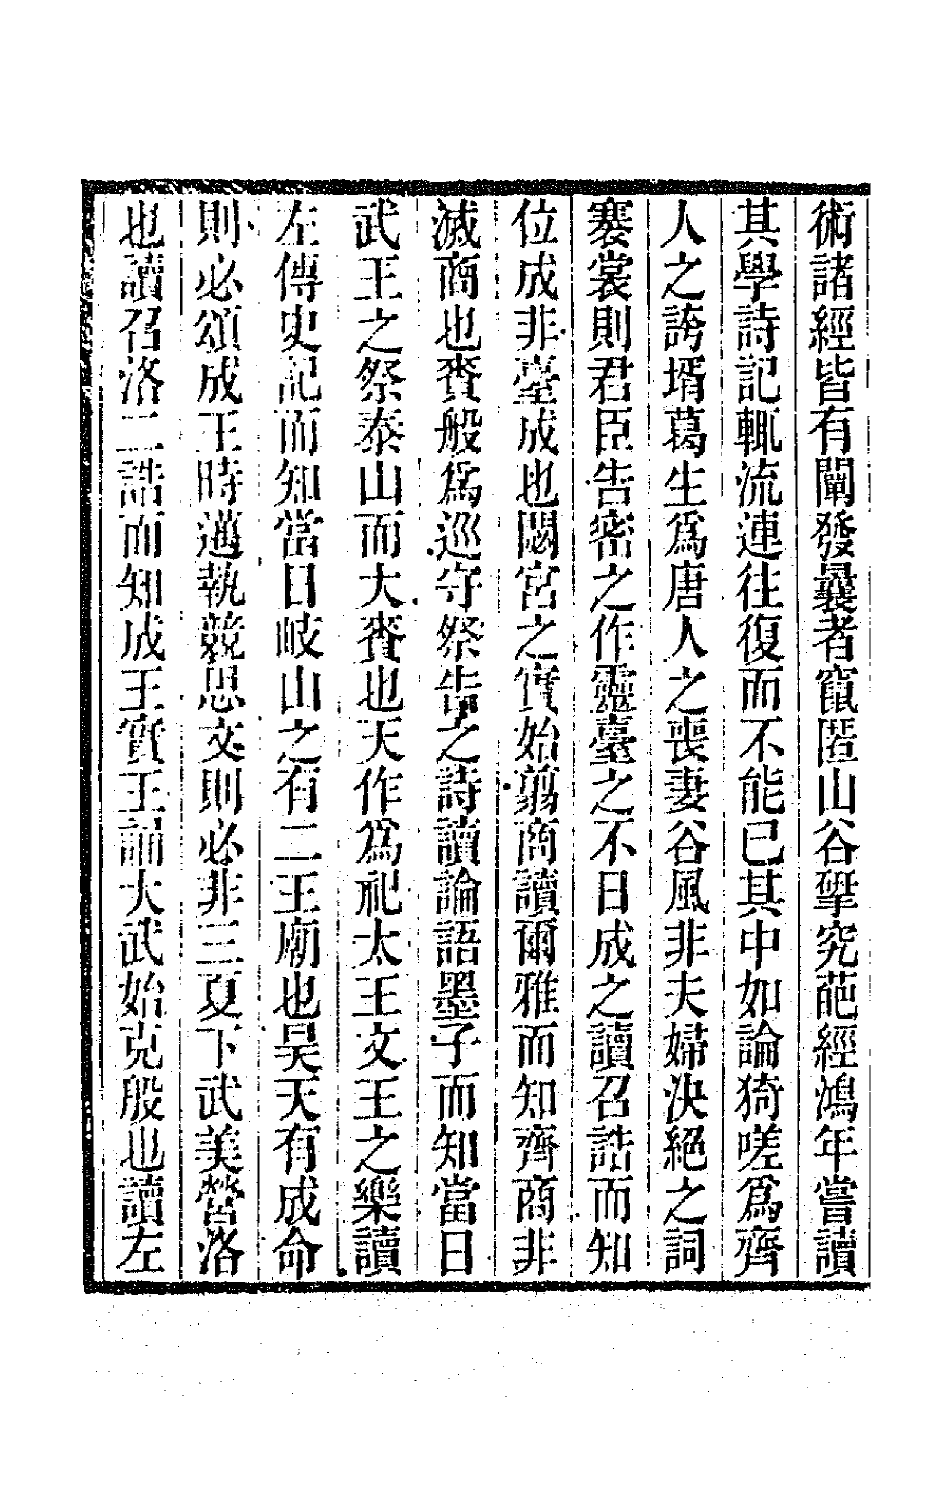 術諸經皆有闡發曩者竄匿山谷揅究葩經鴻年嘗讀
其學詩記輒流連往復而不能已其中如論猗嗟爲齊
人之誇壻葛生爲唐人之喪妻谷風非夫婦決絕之詞
褰裳則君臣告密之作靈臺之不日成之讀召誥而知
位成非臺成也閟宮之實始翦商讀爾雅而知齊商非
滅商也賚般爲巡守祭告之詩讀論語墨子而知當日
武王之祭泰山而大賚也天作爲祀太王文王之樂讀
左傳史記而知當日岐山之有二王廟也昊天有成命
則必頌成王時邁執競思文則必非三夏下武美營洛
也讀召洛二誥而知成王實王誦大武始克殷也讀左